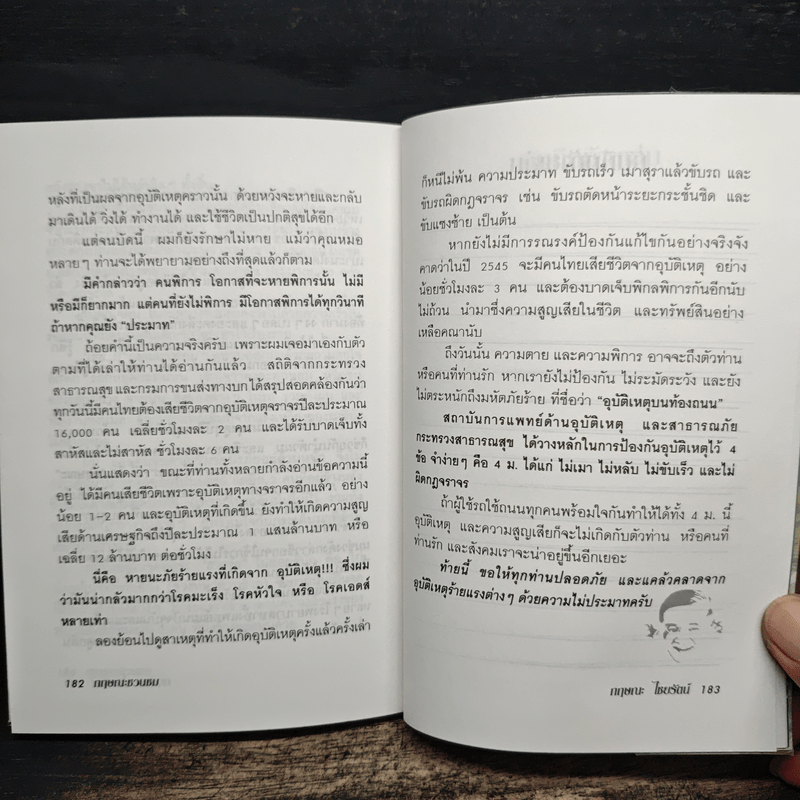 หลังที่เป็นผลจากอุบัติเหตุคราวนั้น ด้วยหวังจะหายและกลับ
มาเดินได้ วิ่งได้ ทำงานได้ และใช้ชีวิตเป็นปกติสุขได้อีก
แต่จนบัดนี้ ผมก็ยังรักษาไม่หาย แม้ว่าคุณหมอ
หลายๆ ท่านจะได้พยายามอย่างถึงที่สุดแล้วก็ตาม
มีคำกล่าวว่า คนพิการ โอกาสที่จะหายพิการนั้น ไม่มี
หรือมีก็ยากมาก แต่คนที่ยังไม่พิการ มีโอกาสพิการได้ทุกวินาที
ถ้าหากคุณยัง “ประมาท”
ถ้อยคำนี้เป็นความจริงครับ เพราะผมเจอมาเองกับตัว
ตามที่ได้เล่าให้ท่านได้อ่านกันแล้ว สถิติจากกระทรวง
สาธารณสุข และกรมการขนส่งทางบก ได้สรุปสอดคล้องกันว่า
ทุกวันนี้มีคนไทยต้องเสียชีวิตจากอุบัติเหตุจราจรปีละประมาณ
16,000 คน เฉลี่ยชั่วโมงละ 2 คน และได้รับบาดเจ็บทั้ง
สาหัสและไม่สาหัส ชั่วโมงละ 6 คน
นั่นแสดงว่า ขณะที่ท่านทั้งหลายกำลังอ่านข้อความนี้
อยู่ ได้มีคนเสียชีวิตเพราะอุบัติเหตุทางจราจรอีกแล้ว อย่าง
น้อย 1-2 คน และอุบัติเหตุที่เกิดขึ้น ยังทำให้เกิดความสูญ
เสียด้านเศรษฐกิจถึงปีละประมาณ 1 แสนล้านบาท หรือ
เฉลี่ย 12 ล้านบาท ต่อชั่วโมง
นี่คือ หายนะภัยร้ายแรงที่เกิดจาก อุบัติเหตุ!!! ซึ่งผม
ว่ามันน่ากลัวมากกว่าโรคมะเร็ง โรคหัวใจ หรือ โรคเอดส์
หลายเท่า
ลองย้อนไปดูสาเหตุที่ทำให้เกิดอุบัติเหตุครั้งแล้วครั้งเล่า
182 กฤษณะชวนชม
ก็หนีไม่พ้น ความประมาท ขับรถเร็ว เมาสุราแล้วขับรถ และ
ขับรถผิดกฎจราจร เช่น ขับรถตัดหน้าระยะกระชั้นชิด และ
ขับแซงซ้าย เป็นต้น
หากยังไม่มีการรณรงค์ป้องกันแก้ไขกันอย่างจริงจัง
คาดว่าในปี 2545 จะมีคนไทยเสียชีวิตจากอุบัติเหตุ อย่าง
น้อยชั่วโมงละ 3 คน และต้องบาดเจ็บพิกลพิการกันอีกนับ
ไม่ถ้วน นำมาซึ่งความสูญเสียในชีวิต และทรัพย์สินอย่าง
เหลือคณานับ
ถึงวันนั้น ความตาย และความพิการ อาจจะถึงตัวท่าน
หรือคนที่ท่านรัก หากเรายังไม่ป้องกัน ไม่ระมัดระวัง และยัง
ไม่ตระหนักถึงมหัตภัยร้าย ที่ชื่อว่า “อุบัติเหตุบนท้องถนน”
สถาบันการแพทย์ด้านอุบัติเหตุ และสาธารณภัย
กระทรวงสาธารณสุข ได้วางหลักในการป้องกันอุบัติเหตุไว้ 4
ข้อ จำง่ายๆ คือ 4 ม. ได้แก่ ไม่เมา ไม่หลับ ไม่ขับเร็ว และไม่
ผิดกฎจราจร
ถ้าผู้ใช้รถใช้ถนนทุกคนพร้อมใจกันทำให้ได้ทั้ง 4 ม. นี้
อุบัติเหตุ และความสูญเสียก็จะไม่เกิดกับตัวท่าน หรือคนที่
ท่านรัก และสังคมเราจะน่าอยู่ขึ้นอีกเยอะ
ท้ายนี้ ขอให้ทุกท่านปลอดภัย และแคล้วคลาดจาก
อุบัติเหตุร้ายแรงต่างๆ ด้วยความไม่ประมาทครับ
กฤษณะ ไชยรัตน์ 183